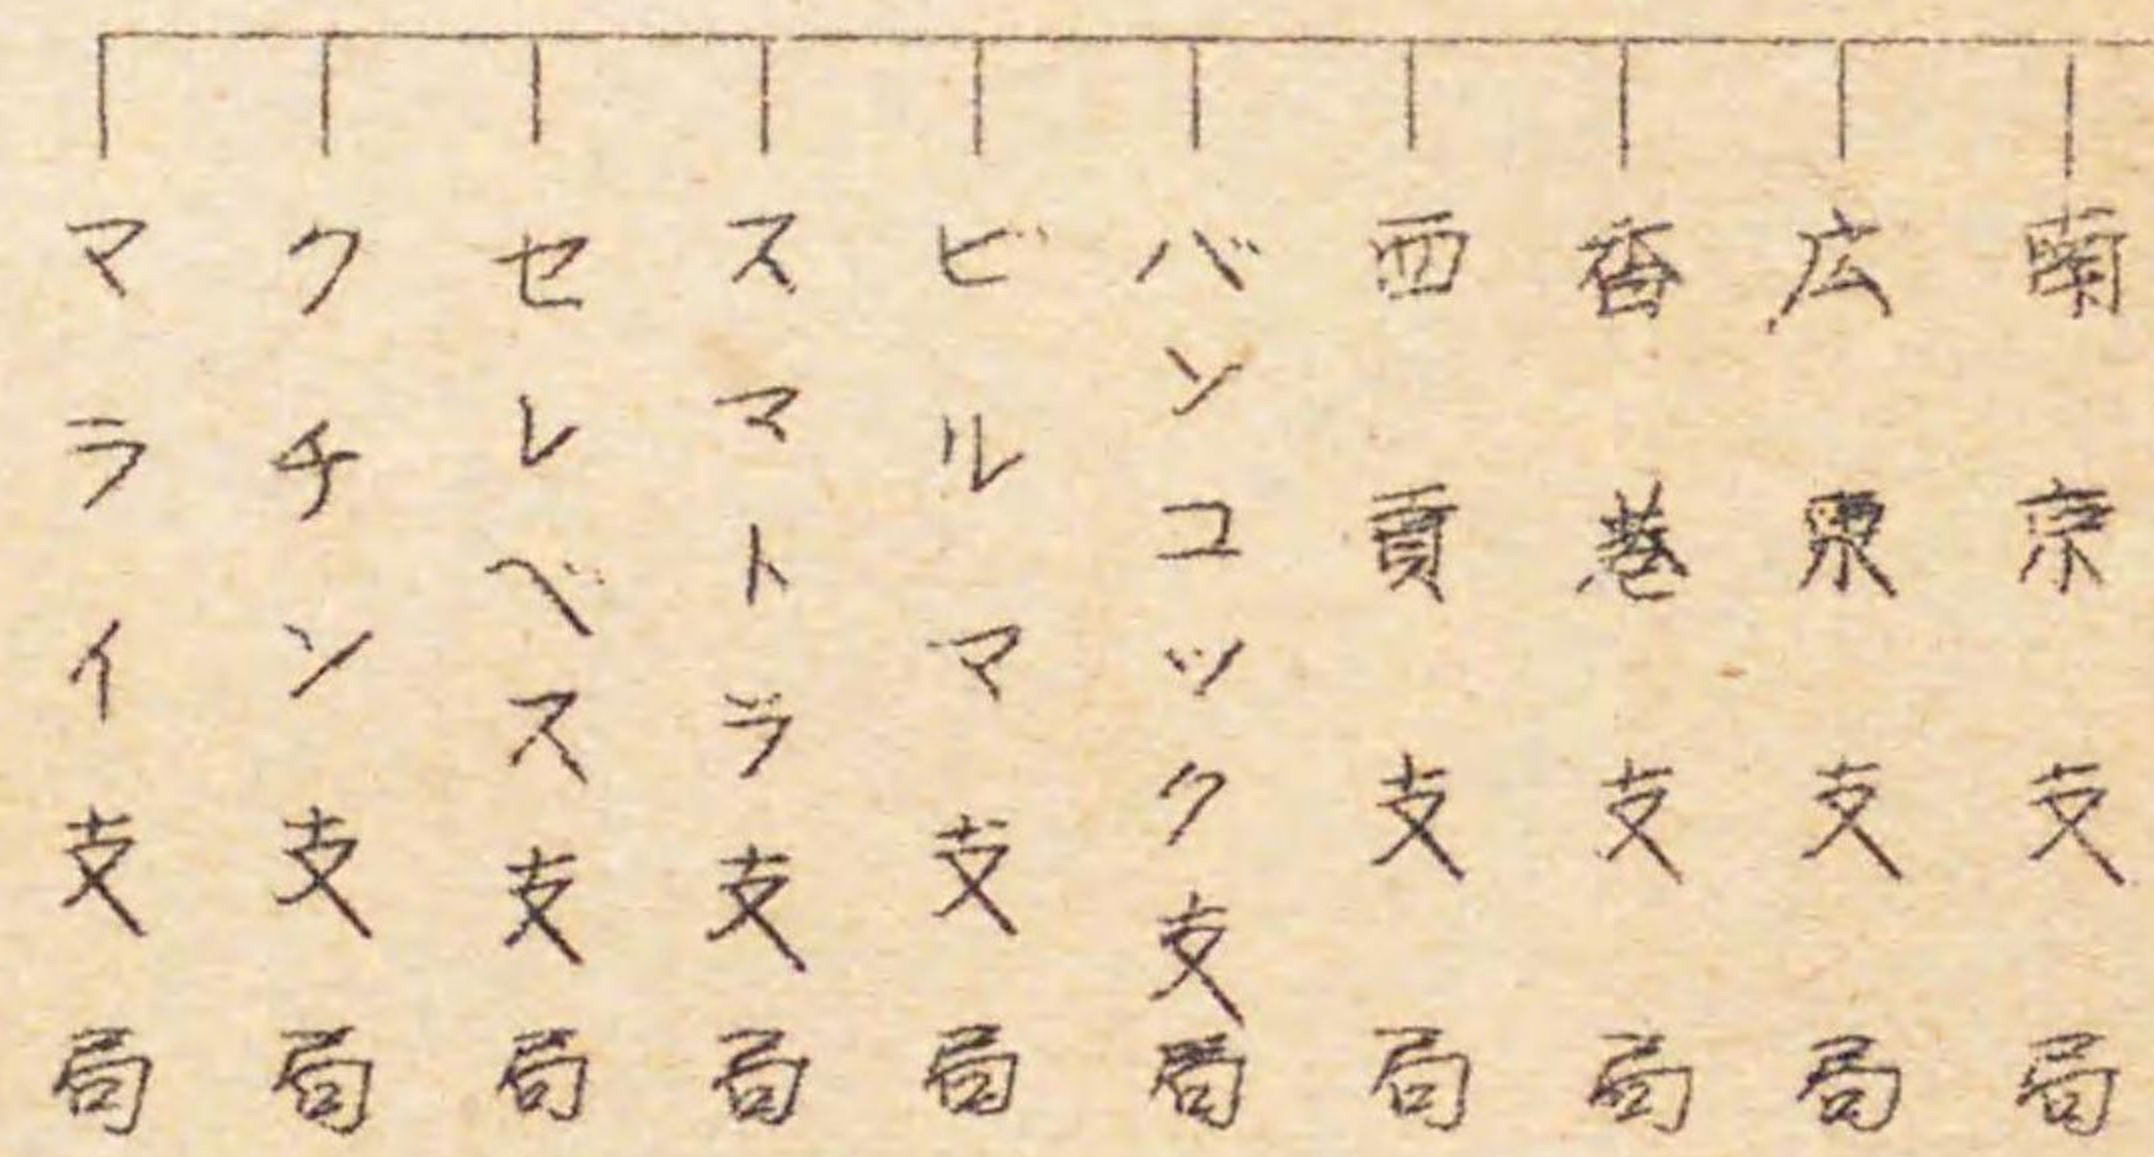 南京支局
広東支局
香港支局
西貢支局
バンコック支局
ビルマ支局
スマトラ支局
セレベス支局
クチン支局
マライ支局